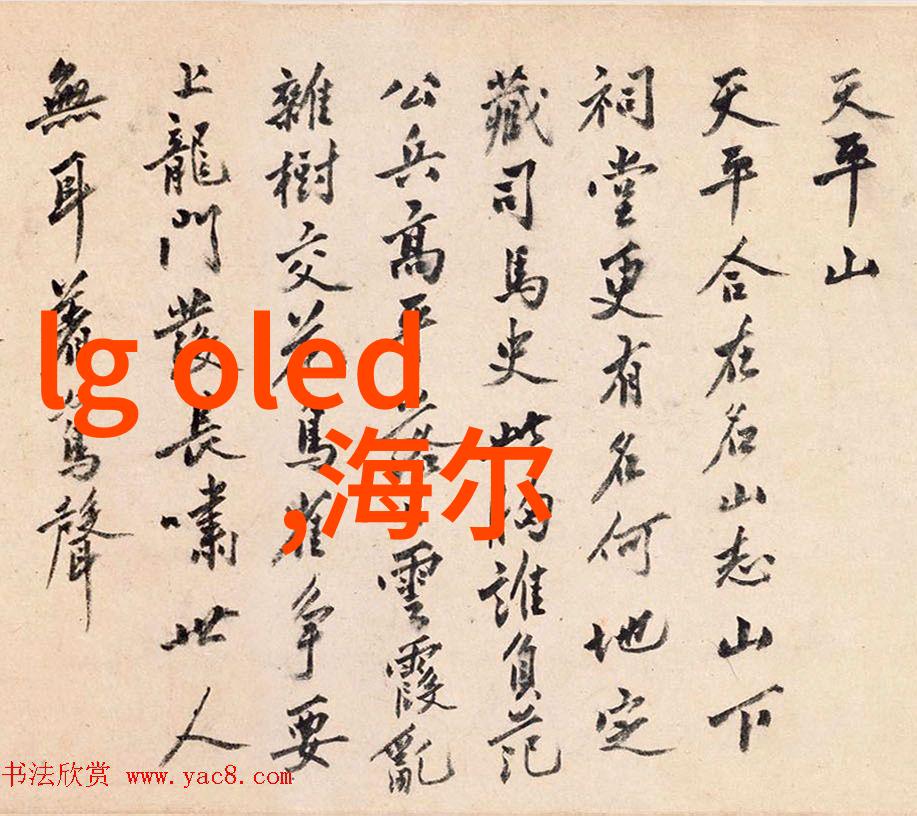 天平山
天平合在名山志山下
祠堂更有名何地定
藏司馬史此誰負范
公兵高平雲霞亂
雜樹交花鳥雀争要
上龍門發長嘯世人
無耳著聲
lg oled
,海尔
书法欣赏 www.yac8.com